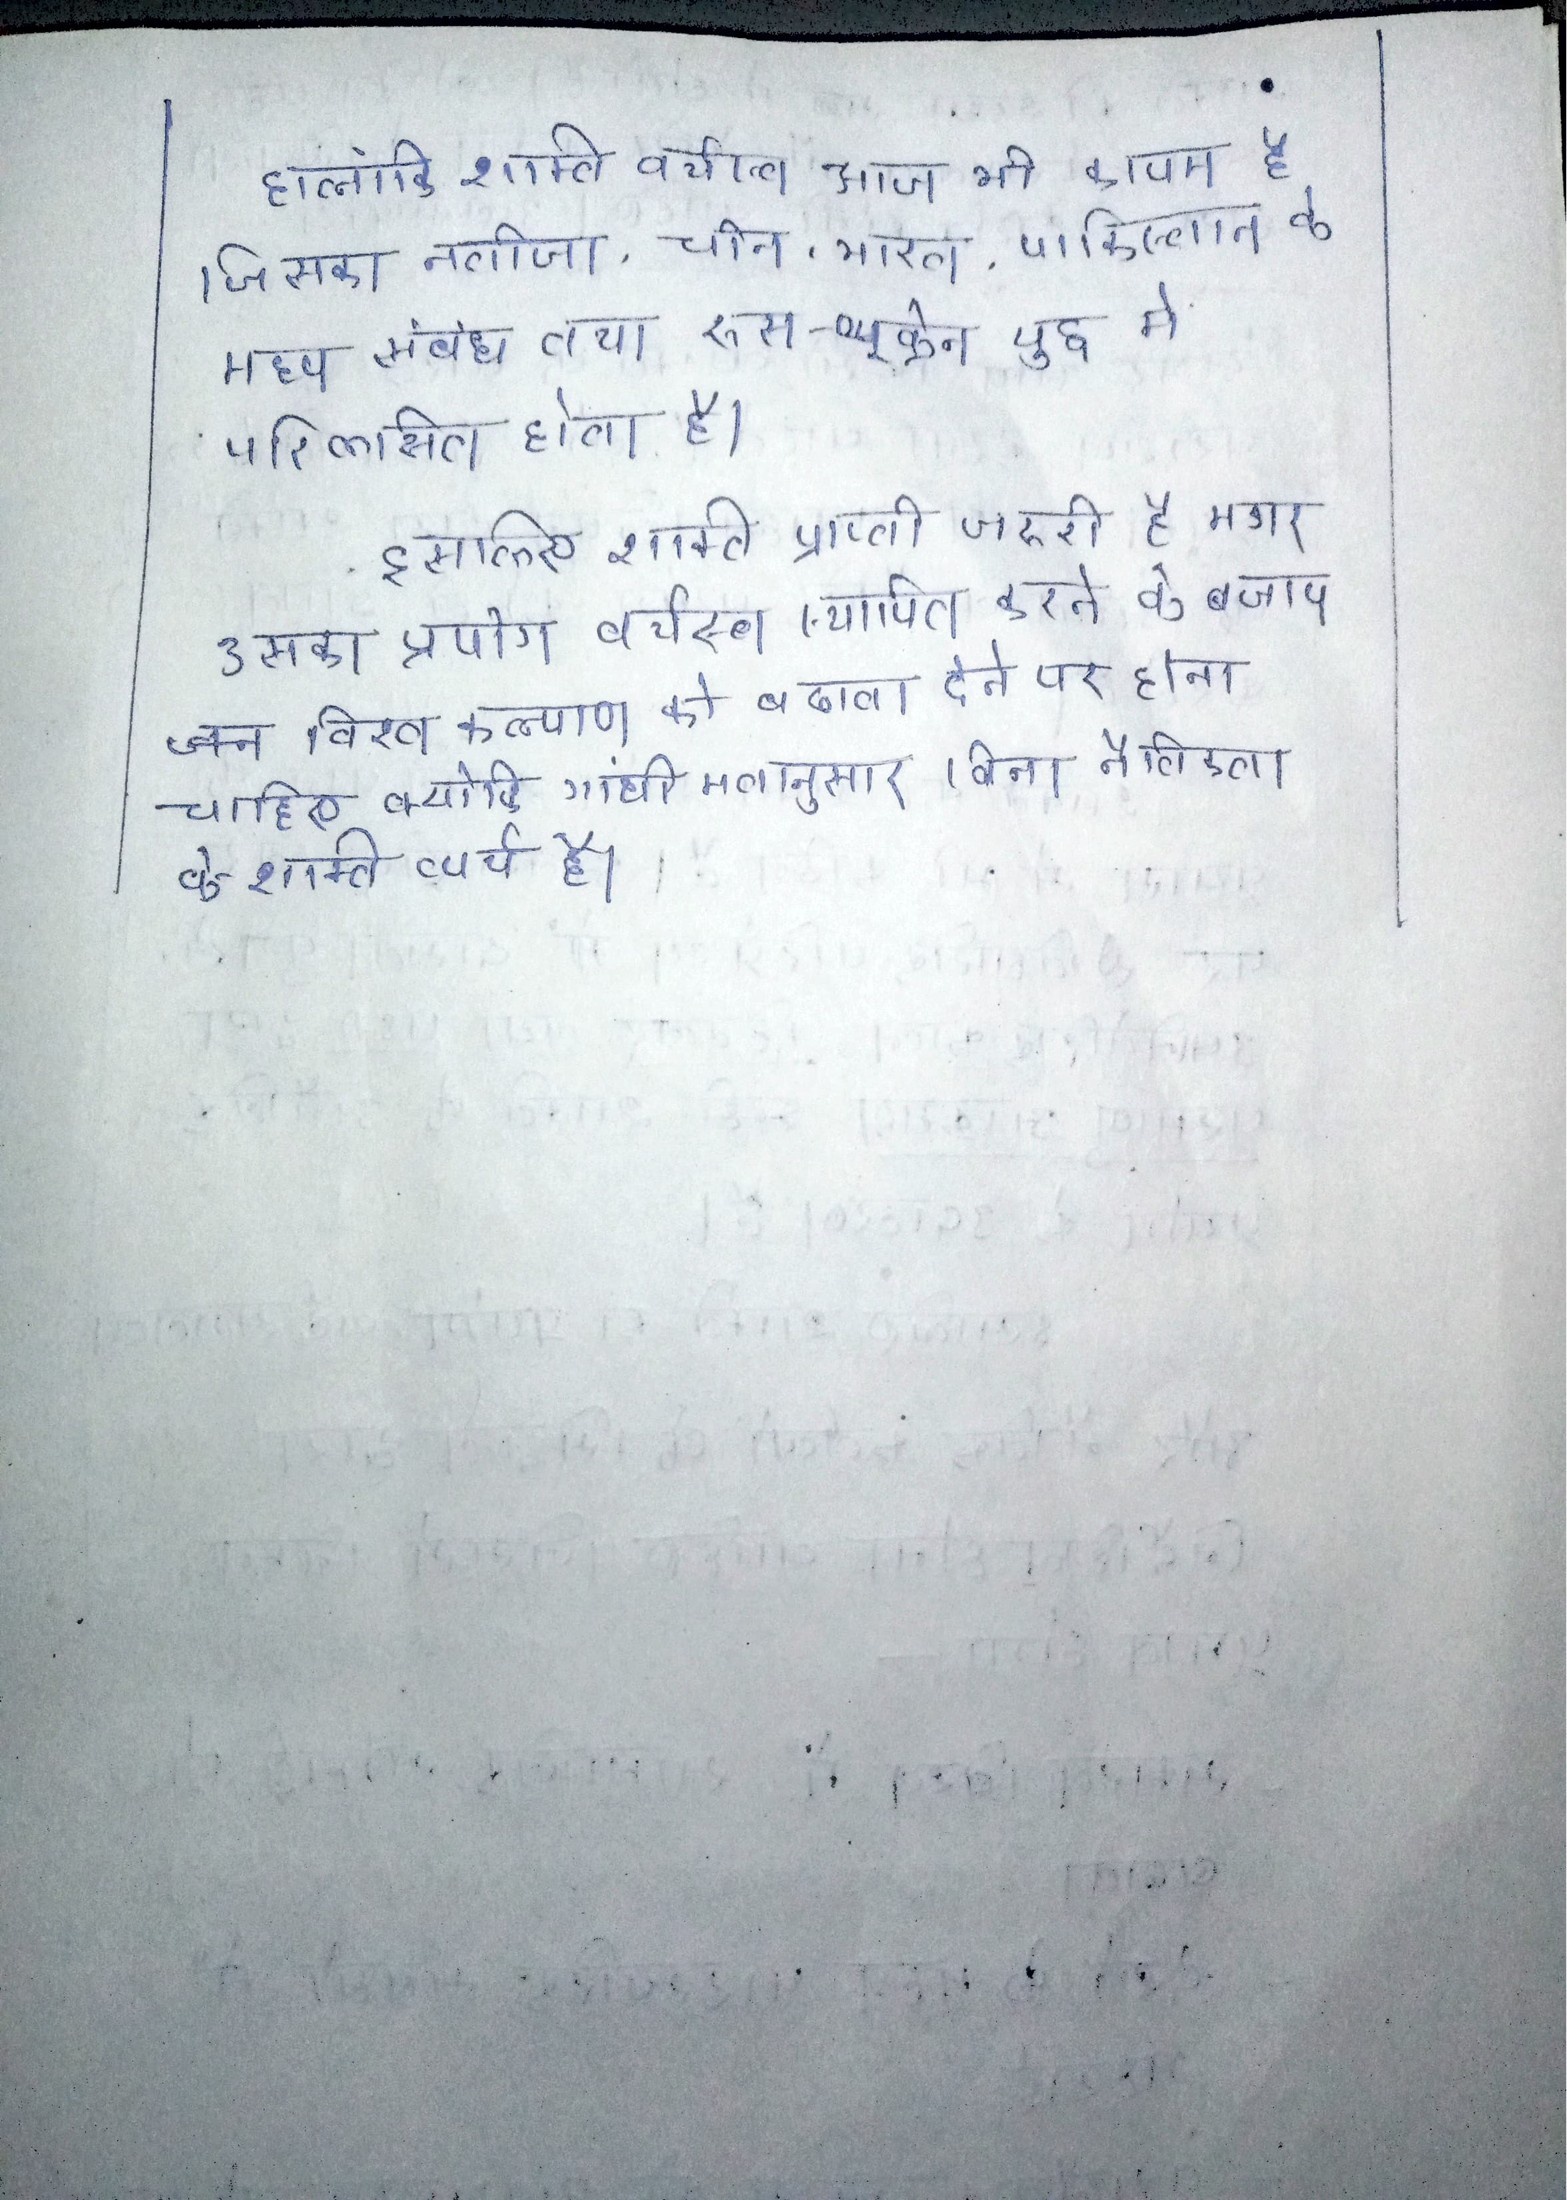 हालांकि शक्ति वर्चस्व आज भी कायम है
जिसका नतीजा, चीन, भारत, पाकिस्तान के
मध्य संबंध तथा रूस-यूक्रेन युद्ध मे
परिलक्षित होता है।
इसलिए शक्ति प्राप्ती जरूरी है मगर
उसका प्रयोग वर्चस्व स्थापित करने के बजाय
जन विश्व कल्याण को बढावा देने पर होना
चाहिए क्योंकि गांधी मतानुसार बिना नैतिकता
के शक्ति व्यर्थ है।